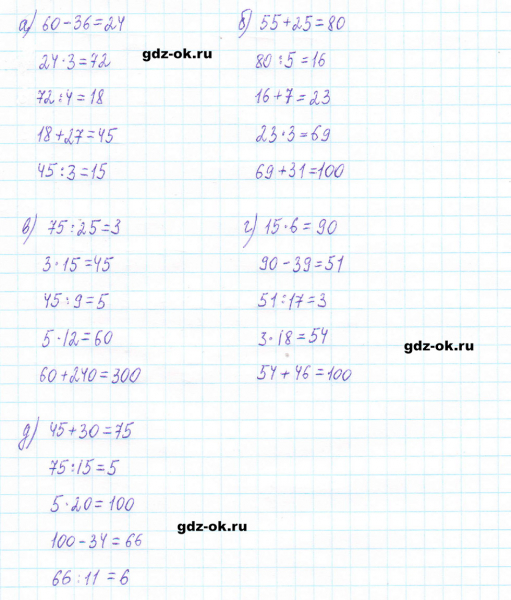 а) 60-36=24
24·3=72
72:4=18
18+27=45
45:3=15
б) 55+25=80
80:5=16
16+7=23
23·3=69
69+31=100
gdz-ok.ru
в) 75:25=3
3·15=45
45:9=5
5·12=60
60+240=300
г) 15·6=90
90-39=51
51:17=3
3·18=54
54+46=100
gdz-ok.ru
д) 45+30=75
75:15=5
5·20=100
100-34=66
66:11=6
gdz-ok.ru